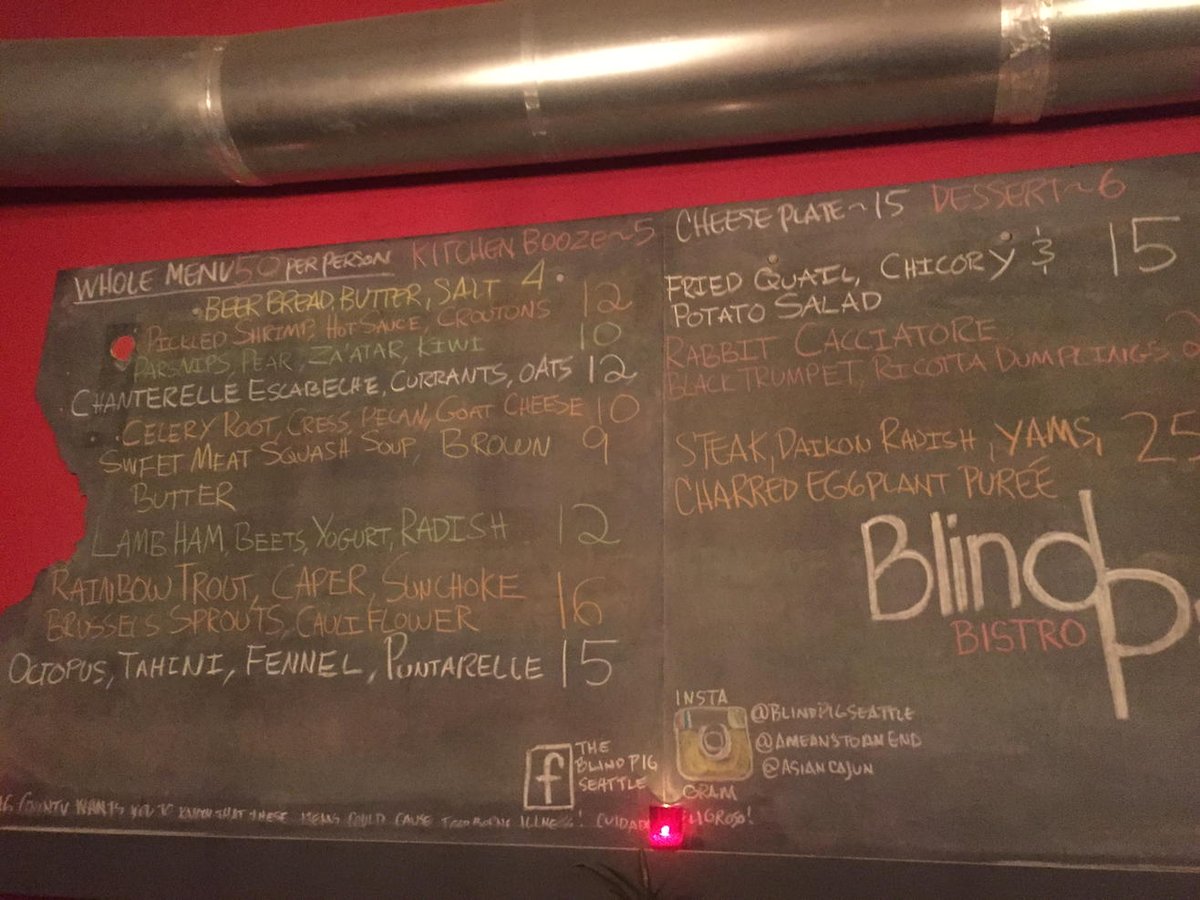 WHOLE MENU 50 PER PERSON KITCHEN BOOZE~5
BEER BREAD, BUTTER, SALT 4
PICKLED SHRIMP, HOT SAUCE, CROUTONS 12
PARSNIPS, PEAR, ZA'ATAR, KIWI 10
CHANTERELLE ESCABECHE, CURRANTS, OATS 12
CELERY ROOT, CRESS, PECAN, GOAT CHEESE 10
SWEET MEAT SQUASH SOUP, BROWN 9
BUTTER
LAMB HAM, BEETS, YOGURT, RADISH 12
RAINBOW TROUT, CAPER, SUNCHOKE
BRUSSELS SPROUTS, CAULIFLOWER 16
OCTOPUS, TAHINI, FENNEL, PUNTARELLE 15
CHEESE PLATE~15 DESSERT~6
FRIED QUAIL, CHICORY & 15
POTATO SALAD
RABBIT CACCIATORE
BLACK TRUMPET, RICOTTA DUMPLINGS
STEAK, DAIKON RADISH, YAMS, 25
CHARRED EGGPLANT PURÉE
Blind P
BISTRO
INSTA
GRAM
@BLINDPIGSEATTLE
@AMEANSTOANEND
@ASIANCAJUN
f
THE
BLIND PIG
SEATTLE
COUNTY WANTS YOU TO KNOW THAT THESE ITEMS COULD CAUSE FOODBORNE ILLNESS! CUIDADO LIGROSO!